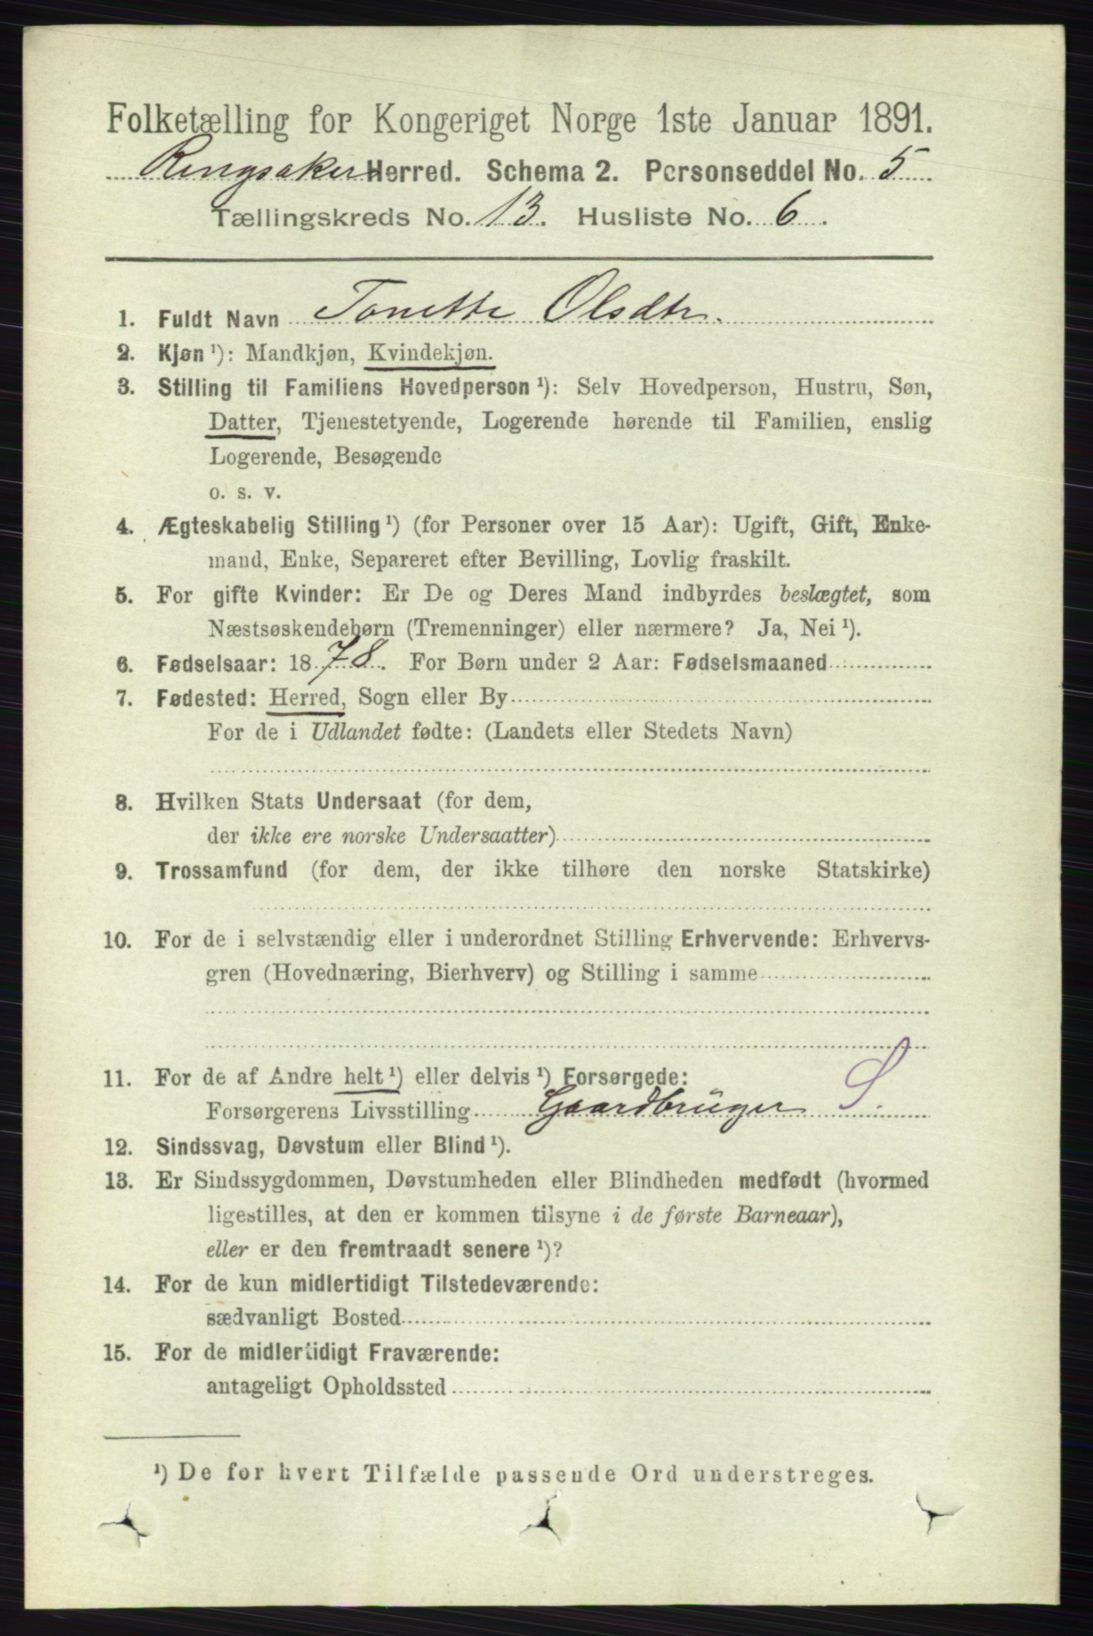 Folketælling for Kongeriget Norge 1ste Januar 1891.
Ringsaker Herred. Schema 2. Personseddel No. 5
Tællingskreds No. 13. Husliste No. 6.
1. Fuldt Navn Tonette Olsdtr.
2. Kjøn ¹): Mandkjøn, Kvindekjøn.
3. Stilling til Familiens Hovedperson ¹): Selv Hovedperson, Hustru, Søn,
Datter, Tjenestetyende, Logerende hørende til Familien, enslig
Logerende, Besøgende
o. s. v.
4. Ægteskabelig Stilling ¹) (for Personer over 15 Aar): Ugift, Gift, Enke-
mand, Enke, Separeret efter Bevilling, Lovlig fraskilt.
5. For gifte Kvinder: Er De og Deres Mand indbyrdes beslægtet, som
Næstsøskendebørn (Tremenninger) eller nærmere? Ja, Nei ¹).
6. Fødselsaar: 1878. For Børn under 2 Aar: Fødselsmaaned
7. Fødested: Herred, Sogn eller By
For de i Udlandet fødte: (Landets eller Stedets Navn)
8. Hvilken Stats Undersaat (for dem,
der ikke ere norske Undersaatter)
9. Trossamfund (for dem, der ikke tilhøre den norske Statskirke)
10. For de i selvstændig eller i underordnet Stilling Erhvervende: Erhvervs-
gren (Hovednæring, Bierhverv) og Stilling i samme
11. For de af Andre helt ¹) eller delvis ¹) Forsørgede:
Forsørgerens Livsstilling Gaardbrüger S.
12. Sindssvag, Døvstum eller Blind ¹).
13. Er Sindssygdommen, Døvstumheden eller Blindheden medfødt (hvormed
ligestilles, at den er kommen tilsyne i de første Barneaar),
eller er den fremtraadt senere ¹)?
14. For de kun midlertidigt Tilstedeværende:
sædvanligt Bosted
15. For de midlertidigt Fraværende:
antageligt Opholdssted
¹) De for hvert Tilfælde passende Ord understreges.